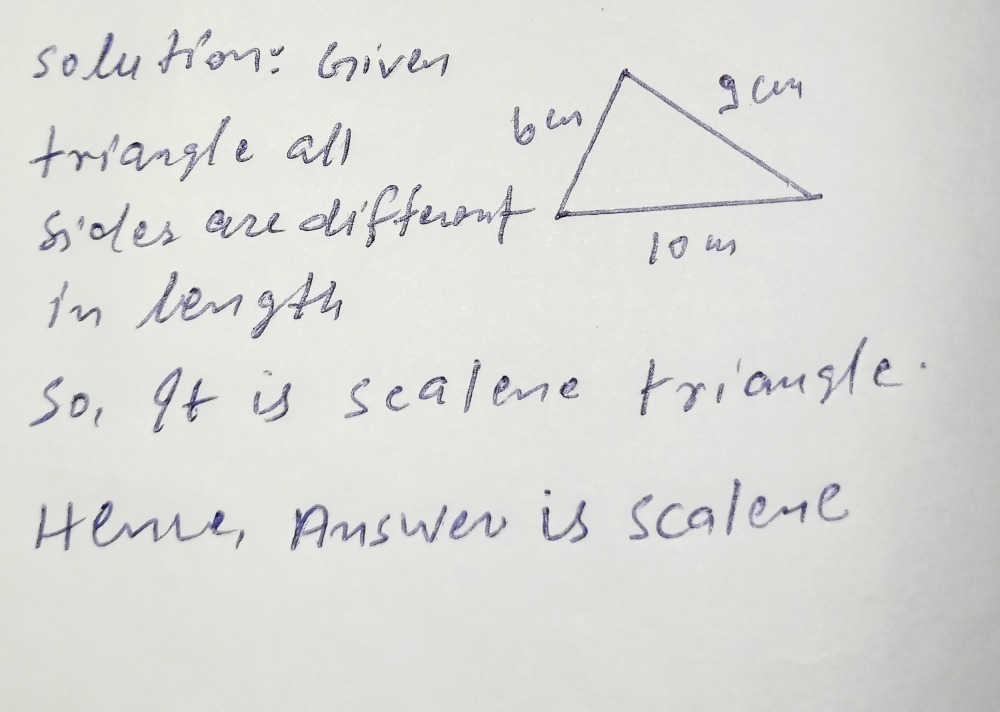 Solution: Given
triangle all
sides are different
in length
6 cm
9 cm
10 cm
So, It is scalene triangle.
Hence, Answer is scalene